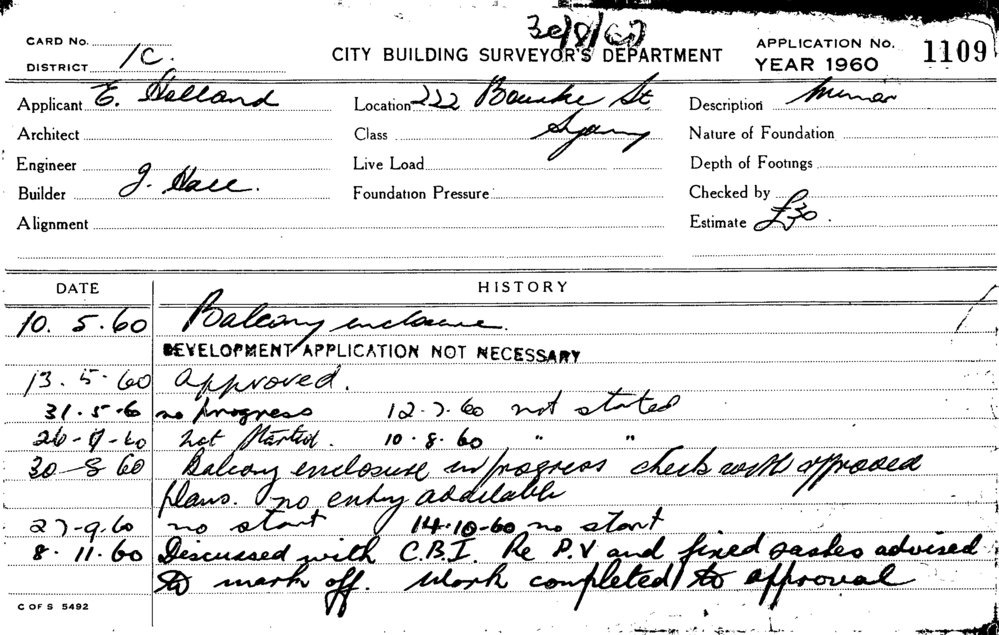 30/8/60
CARD No.
CITY BUILDING SURVEYOR'S DEPARTMENT
APPLICATION No. 1109
DISTRICT 1C.
YEAR 1960
Applicant E. Holland Location 222 Bourke St Description minor
Architect Class Sydney Nature of Foundation
Engineer Live Load Depth of Footings
Builder J. Hall. Foundation Pressure Checked by
Alignment Estimate £30.
DATE HISTORY
10. 5. 60 Balcony enclosure.
DEVELOPMENT APPLICATION NOT NECESSARY
13. 5. 60 approved.
31. 5. 6 no progress 12. 7. 60 not started
26-7-60 not started. 10. 8. 60 " "
30-8 60 Balcony enclosure in progress check with approved
plans. no entry available
27-9.60 no start 14.10-60 no start
8. 11. 60 Discussed with C.B.I. Re P.V and fixed sashes advised
to mark off. Work completed to approval
C OF S 5492